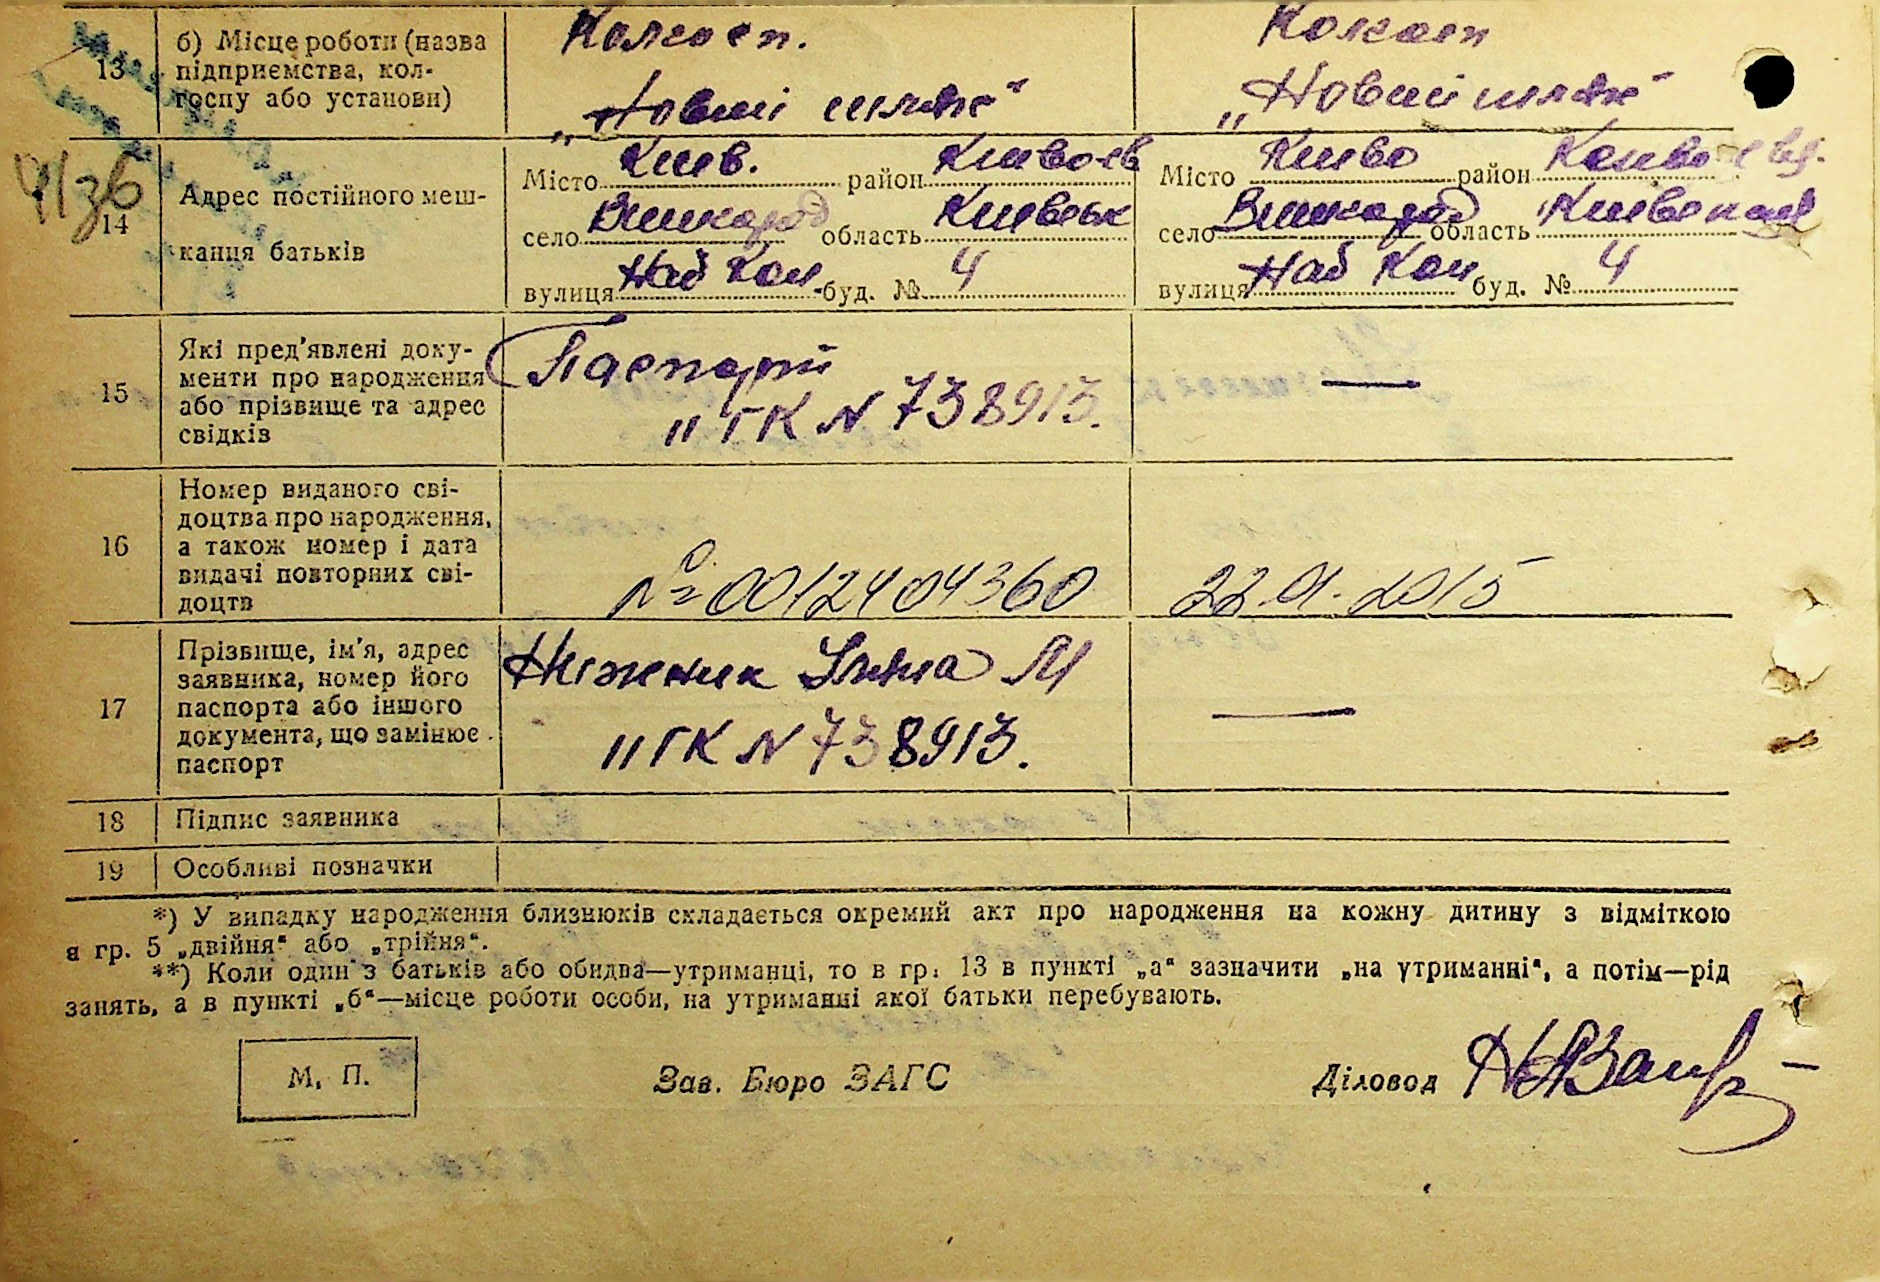 13
б) Місце роботи (назва
підприємства, кол-
госпу або установи)
Колгосп.
„Новий шлях“
Колгосп
„Новий шлях“
14
Адрес постійного меш-
кання батьків
Місто Киев. район Києвсь
село Вишкород область Киевськ
вулиця Наб Кон буд. № 4
Місто Киево район
село Вишкород область
вулиця Наб Кон буд. № 4
15
Які пред'явлені доку-
менти про народження
або прізвище та адрес
свідків
Паспорт
II ГК N 738913.
—
16
Номер виданого сві-
доцтва про народження,
а також номер і дата
видачі повторних сві-
доцтв
№ 0012404360
22.01.2015
17
Прізвище, ім'я, адрес
заявника, номер його
паспорта або іншого
документа, що замінює
паспорт
Ніжник М
II ГК N 738913.
—
18
Підпис заявника
19
Особливі позначки
*) У випадку народження близнюків складається окремий акт про народження на кожну дитину з відміткою
в гр. 5 „двійня“ або „трійня“.
**) Коли один з батьків або обидва—утриманці, то в гр. 13 в пункті „а“ зазначити „на утриманні“, а потім—рід
занять, а в пункті „б“—місце роботи особи, на утриманні якої батьки перебувають.
М. П.
Зав. Бюро ЗАГС
Діловод